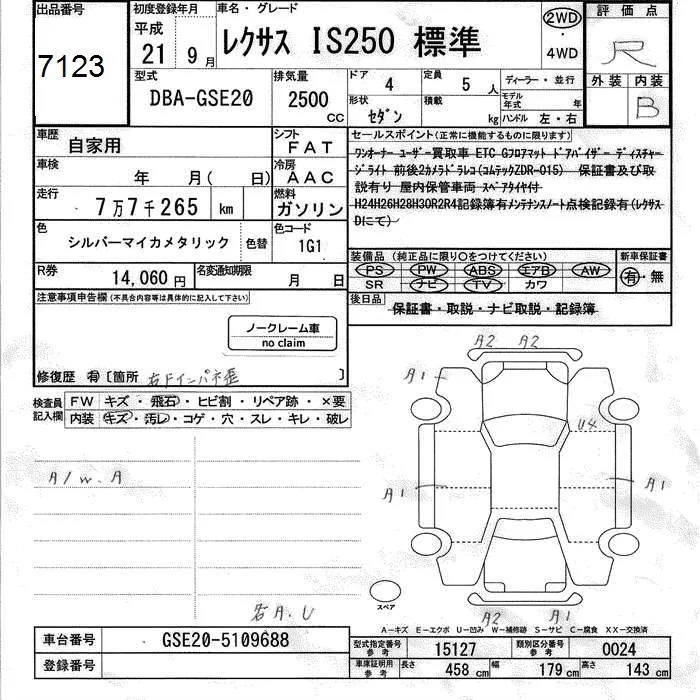 出品番号 初度登録年月 車名・グレード 評価点
7123
平成
21 9月
レクサス IS250 標準
2WD
・
4WD
R
外装 内装
B
型式 排気量
DBA-GSE20 2500 CC
ドア 4 定員 5人 ディーラー・並行
形状 セダン 積載 kg
モデル年式 年
ハンドル 左・右
車歴 自家用 シフト FAT
車検 年 月(日) 冷房 AAC
走行 7万7千265 km 燃料 ガソリン
色 シルバーマイカメタリック 色替 色コード 1G1
R券 14,060円 名変通知期限 月 日
セールスポイント(正常に機能するものに限ります)
ワンオーナー ユーザー買取車 ETC Gフロアマット ドアバイザー ディスチャー
ジライト 前後2カメラドラレコ(コムテックZDR-015) 保証書及び取
説有り 屋内保管車両 スペアタイヤ付
H24H26H28H30R2R4記録簿有メンテナンスノート点検記録有(レクサス
Dにて)
装備品(純正品に限り○をつけてください) 新車保証書
PS PW ABS エアB AW 有・無
SR ナビ TV カワ
後日品 保証書・取説・ナビ取説・記録簿
注意事項申告欄(不具合内容等は具体的に記入して下さい)
ノークレーム車
no claim
修復歴 有[箇所 右ドインパネ歪 ]
検査員記入欄
FW キズ・飛石・ヒビ割・リペア跡・×要
内装 キズ・汚レ・コゲ・穴・スレ・キレ・破レ
A/W.A
右A.U
A2 A2
A1
U4
A1 A1
スペア
A2 A1
A-キズ E-エクボ U-凹み W-補修跡 S-サビ C-腐食 XX-交換済
車台番号 GSE20-5109688
登録番号
型式指定番号参考 15127 類別区分番号参考 0024
車庫証明用参考 長さ 458cm 幅 179cm 高さ 143cm